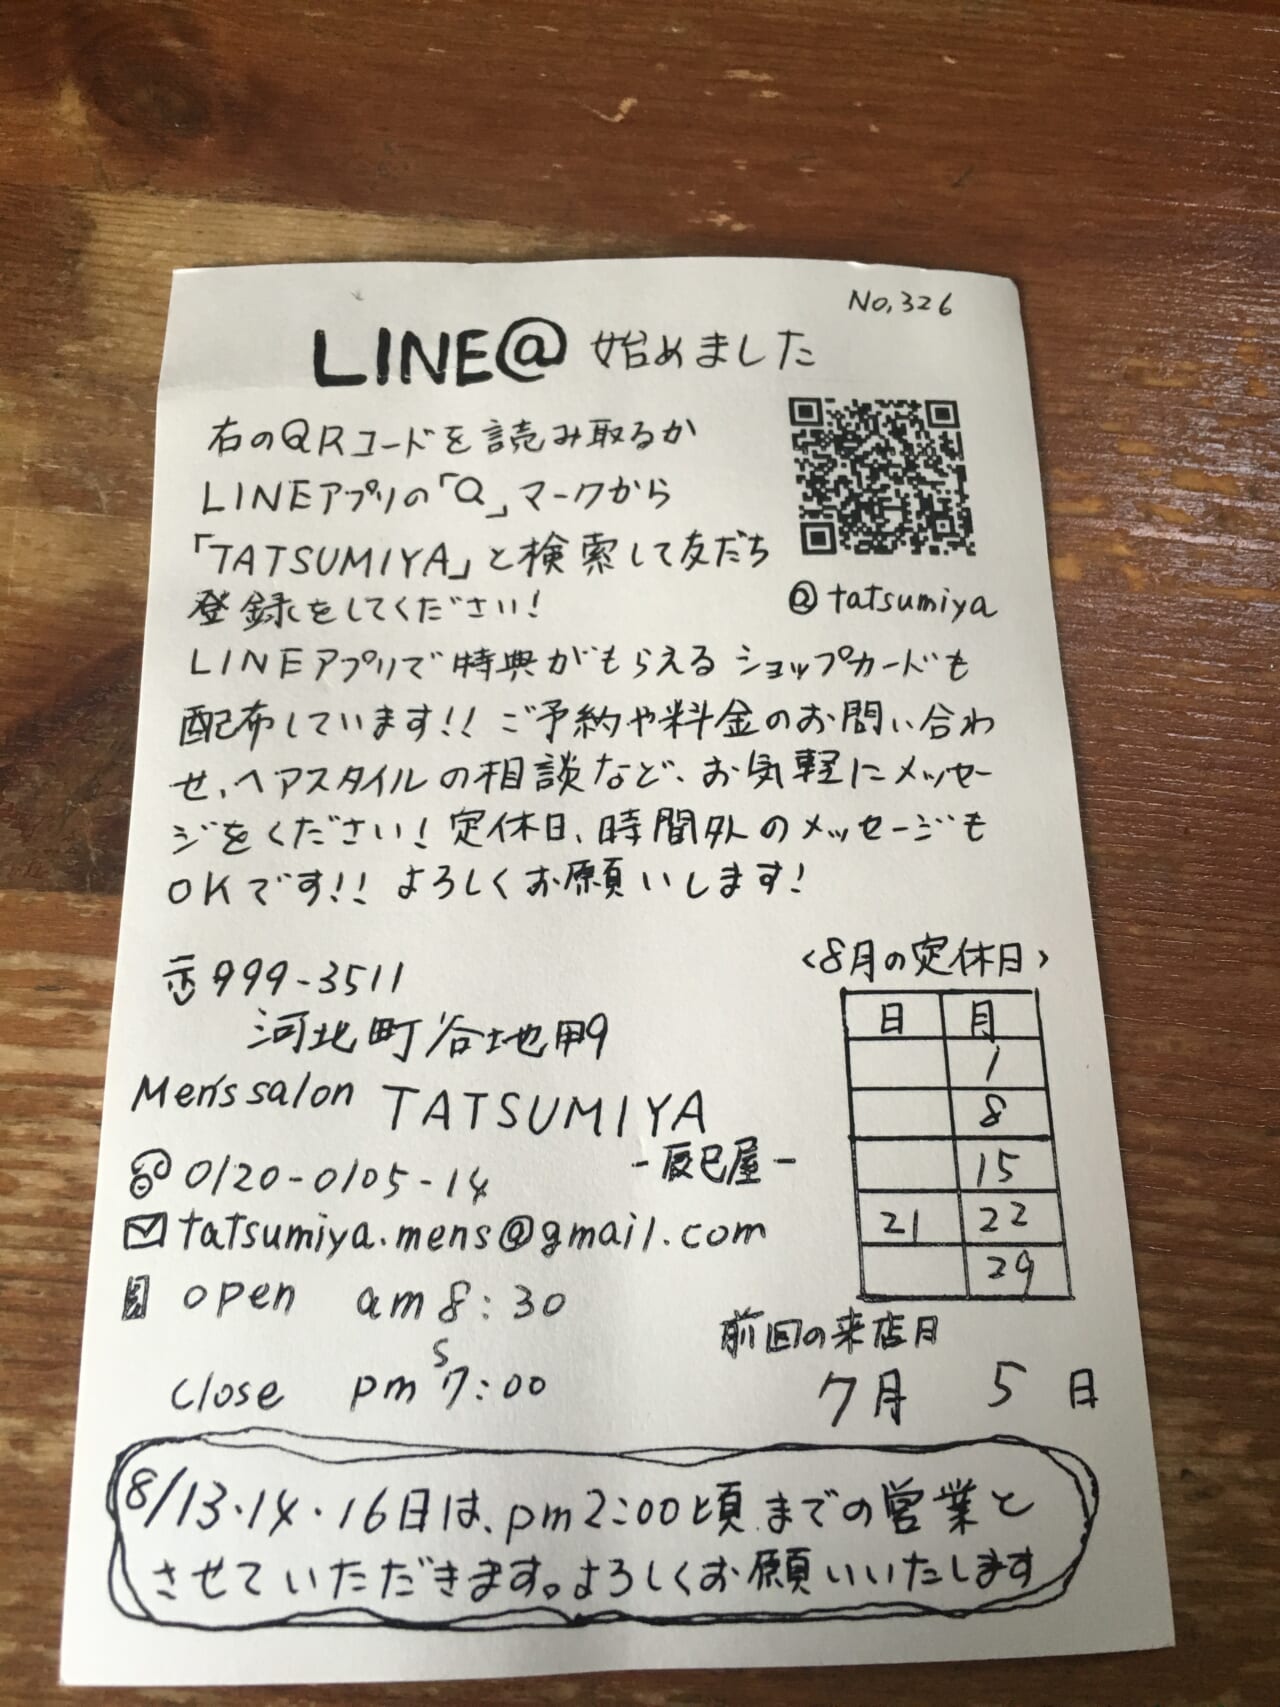 No,326
LINE@ 始めました
右のQRコードを読み取るか
LINEアプリの「Q」マークから
「TATSUMIYA」と検索して友だち
登録をしてください!
@tatsumiya
LINEアプリで特典がもらえるショップカードも
配布しています!! ご予約や料金のお問い合わ
せ、ヘアスタイルの相談など、お気軽にメッセー
ジをください! 定休日、時間外のメッセージも
OKです!! よろしくお願いします!
〒999-3511
河北町谷地甲9
Men's salon TATSUMIYA
-辰巳屋-
0120-0105-14
tatsumiya.mens@gmail.com
open am 8:30
S
close pm 7:00
<8月の定休日>
日 月
1
8
15
21 22
29
前回の来店日
7月 5日
8/13・14・16日は、pm2:00頃までの営業と
させていただきます。よろしくお願いいたします